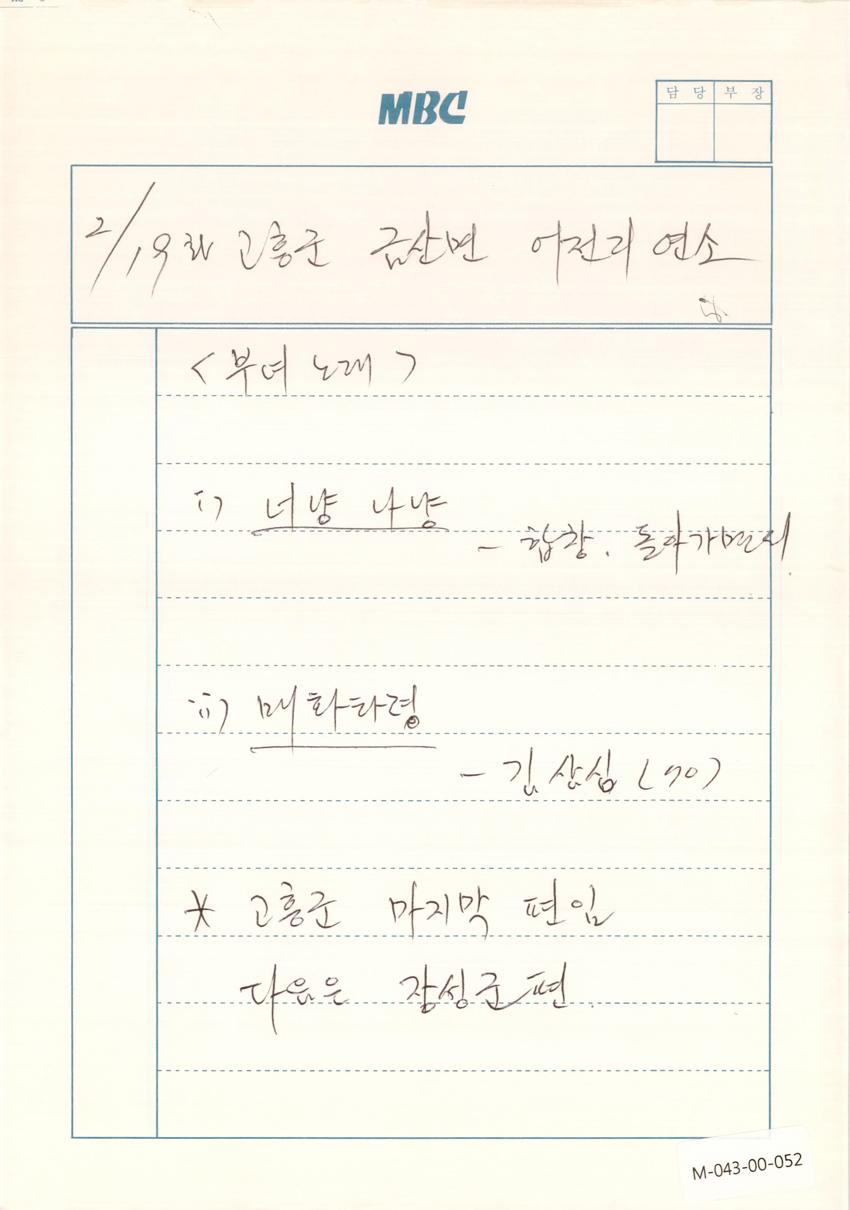 MBC
담 당 부 장
2/19 화 고흥군 금산면 어전리 연소
<부녀 노래>
i) 너냥 나냥
- 합창. 돌아가면서
ii) 매화타령
- 김상심 (70)
* 고흥군 마지막 편임
다음은 장성군편.
M-043-00-052